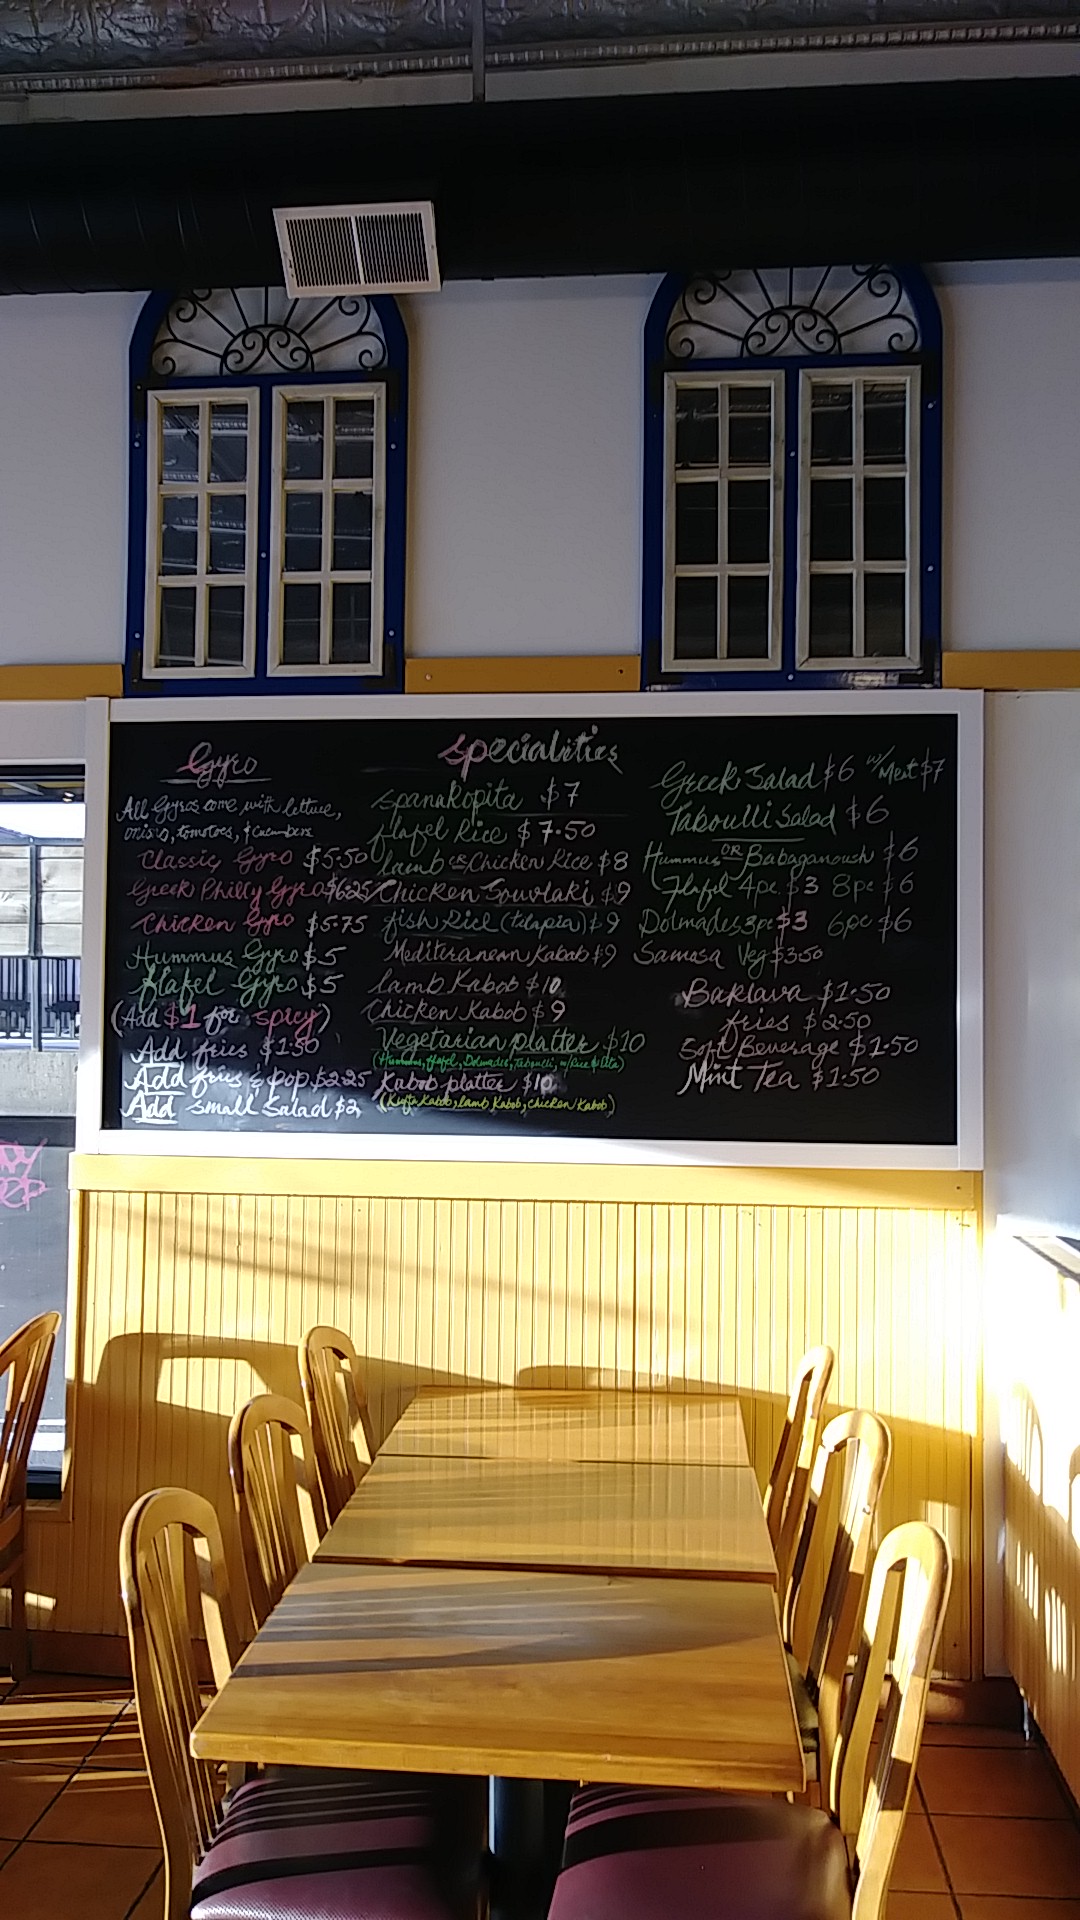 Gyro
All Gyros come with lettuce,
onions, tomatoes, & cucumbers
Classic Gyro $5.50
Greek Philly Gyro $6.25
Chicken Gyro $5.75
Hummus Gyro $5
flafel Gyro $5
(Add $1 for spicy)
Add fries $1.50
Add fries & pop $2.25
Add small Salad $2
specialities
spanakopita $7
flafel Rice $7.50
lamb OR Chicken Rice $8
Chicken Souvlaki $9
fish Rice (tilapia) $9
Mediterranean Kabab $9
lamb Kabob $10
Chicken Kabob $9
Vegetarian platter $10
(Hummus, flafel, Dolmades, Taboulli, w/Rice & Pita)
Kabob platter $10
(Kufta Kabob, lamb Kabob, chicken Kabob)
Greek Salad $6 w/ Meat $7
Taboulli Salad $6
Hummus OR Babaganoush $6
Flafel 4pc $3 8pc $6
Dolmades 3pc $3 6pc $6
Samosa Veg $3.50
Baklava $1.50
fries $2.50
Soft Beverage $1.50
Mint Tea $1.50